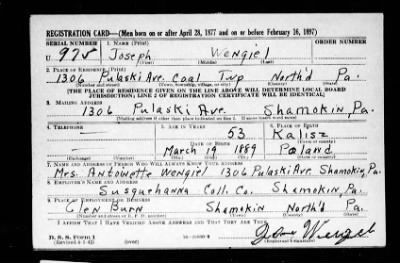 REGISTRATION CARD—(Men born on or after April 28, 1877 and on or before February 16, 1897)
SERIAL NUMBER 1. NAME (Print)
U 975 Joseph Wengiel
(First) (Middle) (Last)
2. PLACE OF RESIDENCE (Print)
1306 Pulaski Ave. Coal Twp North'd Pa.
(Number and street) (Town, township, village, or city) (County) (State)
[THE PLACE OF RESIDENCE GIVEN ON THE LINE ABOVE WILL DETERMINE LOCAL BOARD
JURISDICTION; LINE 2 OF REGISTRATION CERTIFICATE WILL BE IDENTICAL]
3. MAILING ADDRESS
1306 Pulaski Ave. Shamokin, Pa.
[Mailing address if other than place indicated on line 2. If same insert word same]
4. TELEPHONE 5. AGE IN YEARS 6. PLACE OF BIRTH
53 Kalisz
DATE OF BIRTH
March 19 1889 Poland
(Exchange) (Number) (Mo.) (Day) (Yr.) (State or country)
7. NAME AND ADDRESS OF PERSON WHO WILL ALWAYS KNOW YOUR ADDRESS
Mrs. Antoinette Wengiel 1306 Pulaski Ave. Shamokin, Pa.
8. EMPLOYER'S NAME AND ADDRESS
Susquehanna Coll. Co. Shamokin, Pa.
9. PLACE OF EMPLOYMENT OR BUSINESS
Glen Burn Shamokin North'd Pa.
(Number and street or R. F. D. number) (Town) (County) (State)
I AFFIRM THAT I HAVE VERIFIED ABOVE ANSWERS AND THAT THEY ARE TRUE.
D. S. S. Form 1
(Revised 4-1-42) (over)
(Registrant's signature)